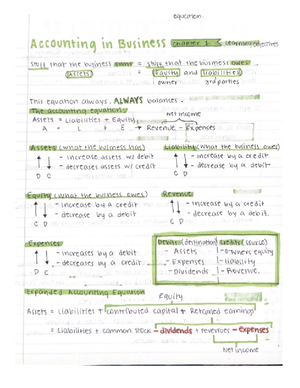 equation
Accounting in Business chapter 1 learning objectives
stuff that the business owns = stuff that the business owes
(Assets) = (Equity) and (liabilities)
owner 3rd parties
This equation always, ALWAYS balances.
The accounting equation
net income
Assets = Liabilities + Equity
A = L + E → Revenue - Expenses
Assets (what the business has) Liability (what the business owes)
- increase assets w/ debit - increase by a credit
- decreases assets w/ credit - decrease by a debit
D C C D
Equity (what the business owes) Revenue
- increase by a credit - increase by a credit
- decrease by a debit - decrease by a debit.
C D C D
Expenses Debits (destination) Credits (source)
- increases by a debit - Assets - Owners equity
- decreases by a credit - Expenses - liability
D C - Dividends - Revenue.
Expanded Accounting Equation
Equity
Assets = liabilities + contributed capital + Retained earnings
= Liabilities + common stock - dividends + revenues - expenses
Net income